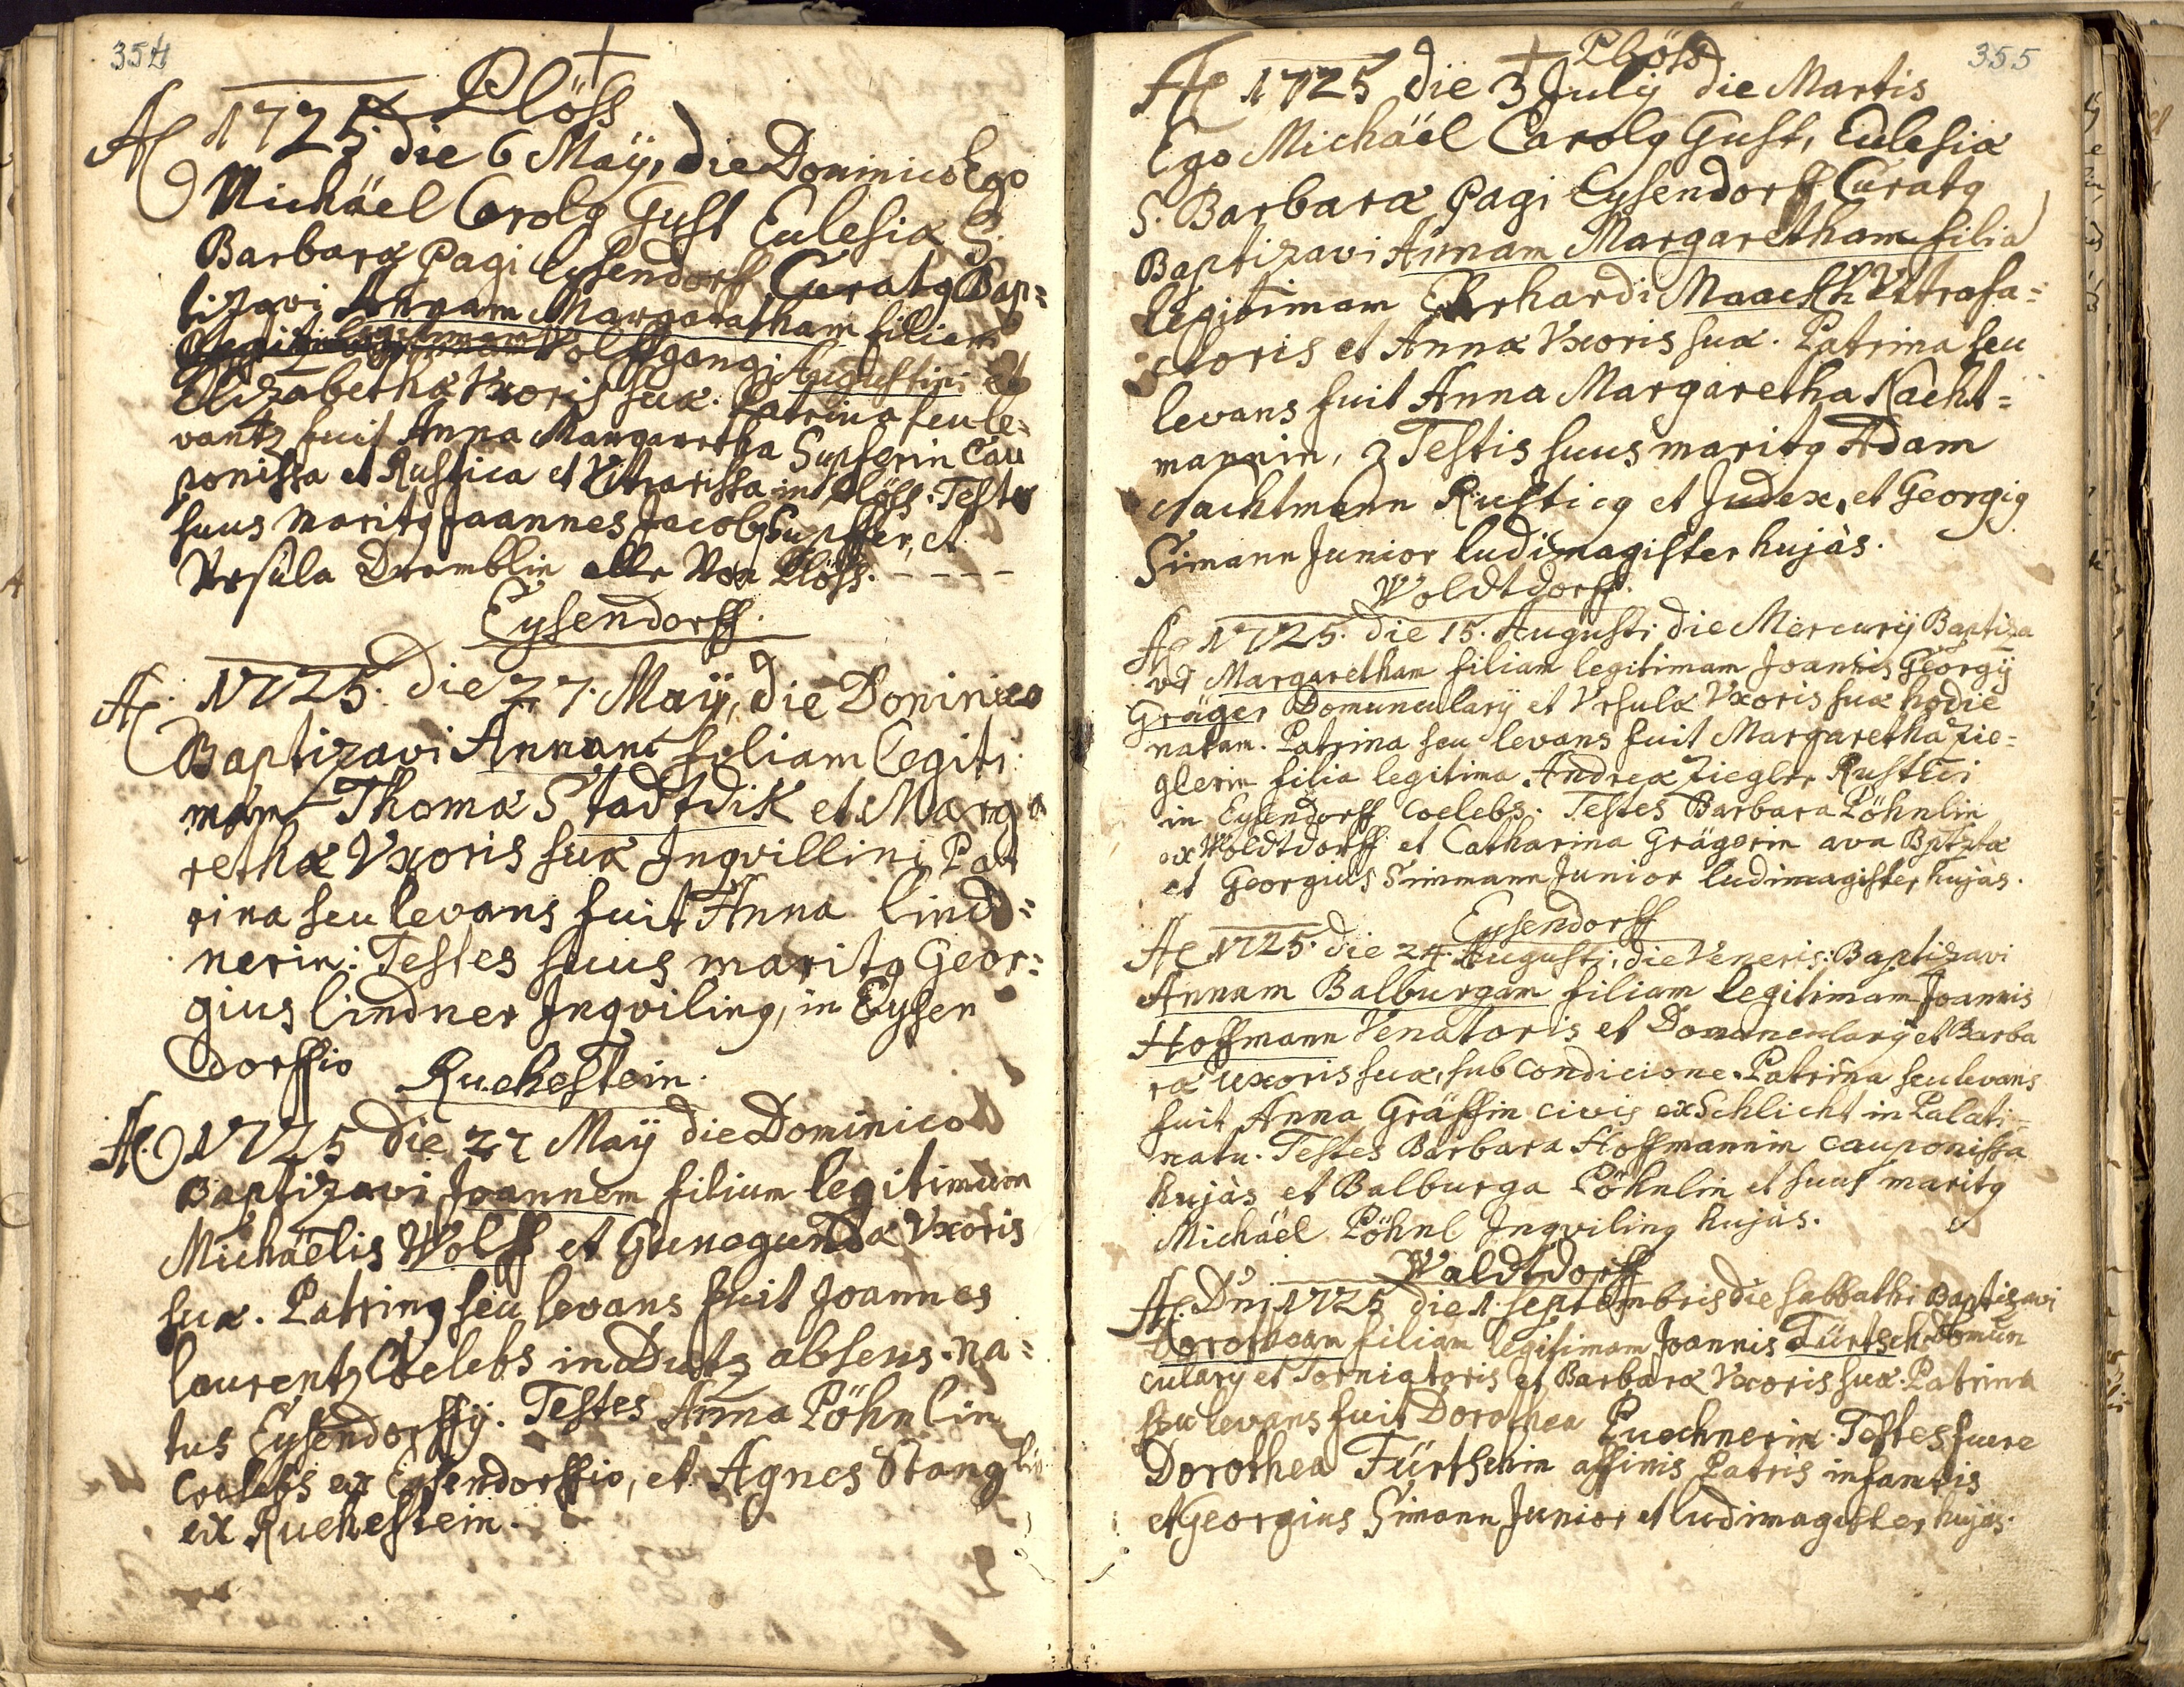 354
Plöss
Ao 1725. die 6 Maÿ, die Dominico Ego
Michäel Carolq Gust Eclesiæ S.
Barbaræ Pagi Eysendorff Curatq Bap=
tizavi Annam Margaretham filiam
legitimam Wolffgangi Augustini et
Elizabethæ Vxoris suæ. Patrina seu le=
vants fuit Anna Margaretha Supferin Cau
ponissa et Rustica et Vitrarissa in Plöss. Testes
suus maritq Joannes Jacobq Supffer, et
Vrsula Dromblin alle Von Plöss.
Eysendorff.
Ao. 1725. die 27. Maÿ, die Dominico
Baptizavi Annam filiam legiti
mam Thomæ Stadtdik et Marga
rethæ Vxoris suæ Jnqvillini Pat
rina seu levans fuit Anna lind=
nerin: Testes suus maritq Geor=
gius lindner Jnqviling, in Eysen
dorffio
Ruchestein.
Ao. 1725 die 27 Maÿ die Dominico
Baptizavi Joannem filium legitimum
Michaëlis Wolff et Gunegundæ Vxoris
suæ. Patrinq seu levans fuit Joannes
laurentz Coelebs in absens. na=
tus Eysendorffÿ. Testes Anna Pöhnlin
Coelebs ex Eysendorffio, et Agnes Stanglin
ex Ruehestein.
355
Plöss
Ao 1725 die 3 Julÿ die Martis
Ego Michäel Carolq Gust, Eclesiæ
S. Barbaræ Pagi Eysendorff Curatq
Baptizavi Annam Margaretham filia
legitimam Erhardi Maackh Vitrafa=
ctoris et Annæ Vxoris suæ. Patrina seu
levans fuit Anna Margaretha Nacht=
mannin, 2 Testis suus maritq Adam
Nachtmann Rusticq et Judex, et Georgiq
Simann Junior ludimagister hujàs.
Woldtdorff.
Ao 1725. die 15. Augusti die Mercurÿ Baptiza
vi Margaretham filiam legitimam Joannis Georgÿ
Gräger Domuncularÿ et Vrsulæ Vxoris suæ hodie
natam. Patrina seu levans fuit Margaretha Zie=
glerin filia legitima Andreæ Ziegler Rustici
in Eysendorff Coelebs. Testes Barbara Pöhnlin
ex Woldtdorff et Catharina Grägerin ava Bptztæ
et Georgius Simmann Junior ludimagister hujàs.
Eysendorff
Ao 1725. die 24. Augusti, die Veneris: Baptizavi
Annam Balburgam filiam legitimam Joannis
Hoffmann Venatoris et Domuncularÿ et Barba
ræ uxoris suæ, sub Condicione. Patrina seu levans
fuit Anna Gräffin civis ex Schlicht in Palati=
natu. Testes Barbara Hoffmannin cauponissa
hujàs et Balburga Pöhnlin et suus maritq
Michäel Pöhnl Jnqviling hujàs.
Waldtdorff
Ao. Dni 1725 die 1. Septembris die Sabbathi Baptizavi
Dorotheam filiam legitimam Joannis Fürtsch Domun
cularÿ et Torniatoris et Barbaræ Vxoris suæ. Patrina
seu levans fuit Dorothea Puechnerin. Testes fuere
Dorothea Fürtschin affinis Patris infantis
et Georgius Simann Junior et ludimagister hujàs.